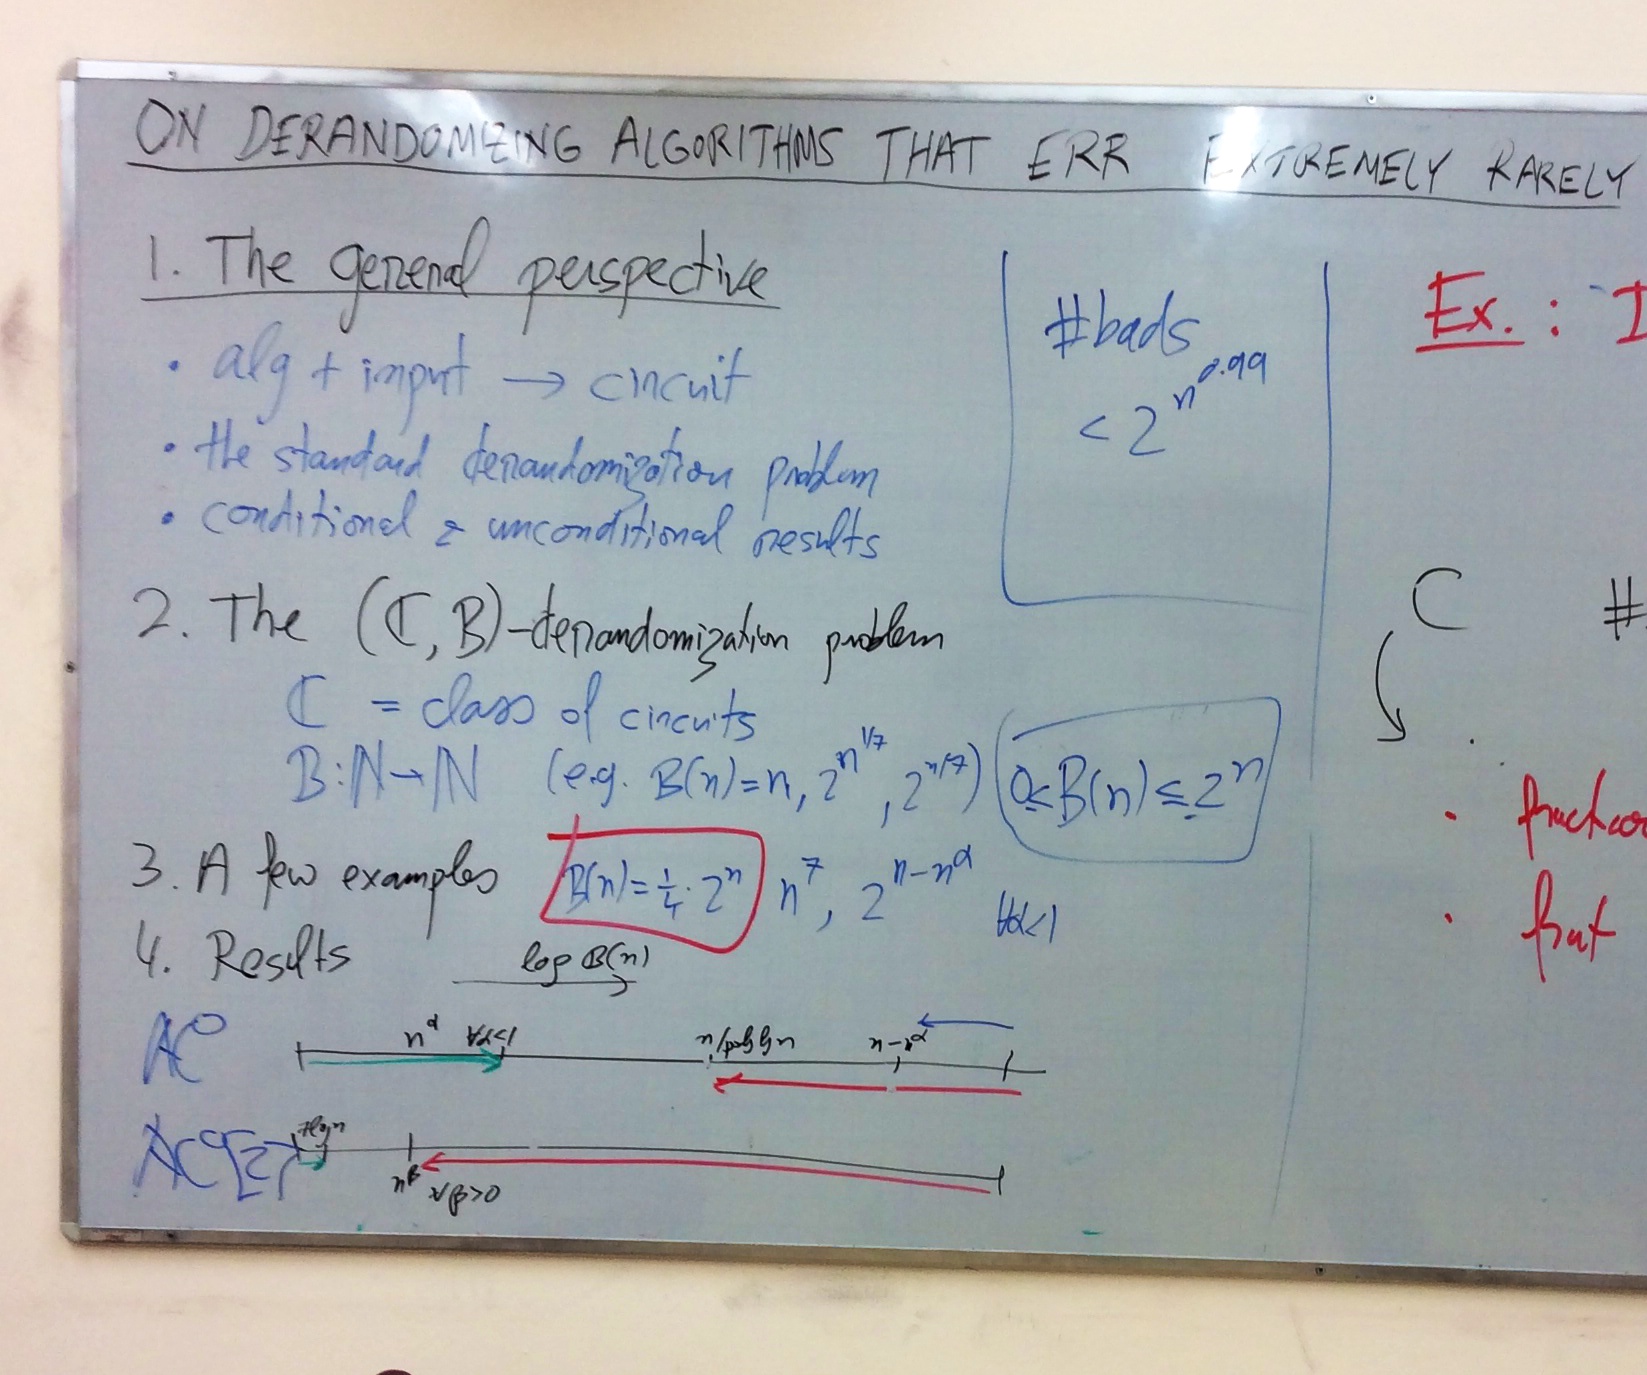 ON DERANDOMIZING ALGORITHMS THAT ERR EXTREMELY RARELY
1. The general perspective
• alg + input → circuit
• the standard derandomization problem
• conditional & unconditional results
2. The (ℂ, B)-derandomization problem
ℂ = class of circuits
B : ℕ → ℕ (e.g. B(n)=n, 2^{n^{1/7}}, 2^{n/7}) 0≤B(n)≤2^n
3. A few examples B(n)=1/4·2^n n^7, 2^{n-n^α} ∀α<1
4. Results log B(n)
AC^0 n^α ∀α<1 n/poly lg n n-n^α
AC^0[2] 7log n n^β ∀β>0
#bads
< 2^{n^{0.99}}
Ex. :
C #
•
•